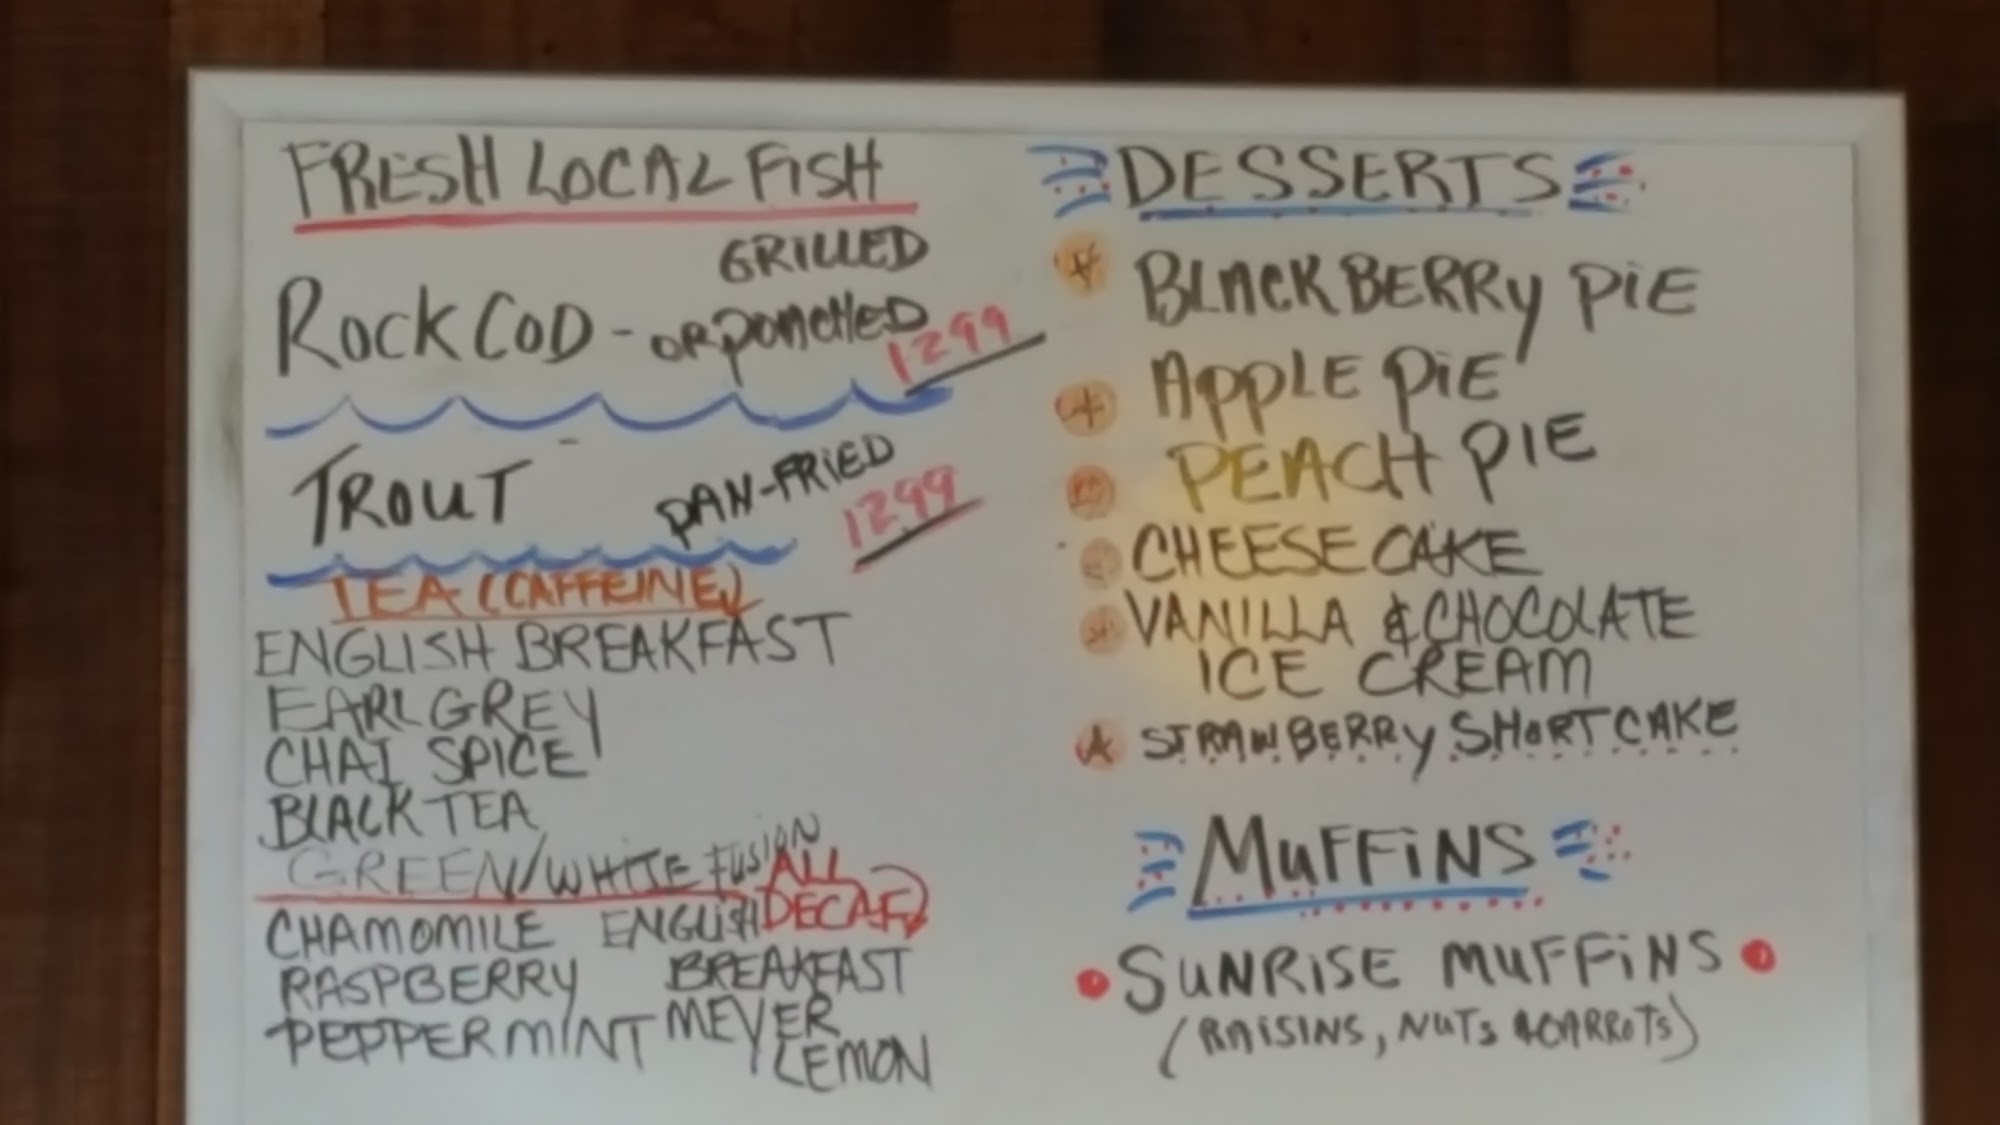 FRESH LOCAL FISH
GRILLED
ROCK COD - OR POACHED
1299
TROUT PAN-FRIED
1299
TEA (CAFFEINE)
ENGLISH BREAKFAST
EARL GREY
CHAI SPICE
BLACK TEA
GREEN/WHITE FUSION
ALL
DECAF
CHAMOMILE ENGLISH
RASPBERRY BREAKFAST
PEPPERMINT MEYER
LEMON
DESSERTS
BLACKBERRY PIE
APPLE PIE
PEACH PIE
CHEESE CAKE
VANILLA & CHOCOLATE
ICE CREAM
STRAWBERRY SHORTCAKE
MUFFINS
SUNRISE MUFFINS
(RAISINS, NUTS & CARROTS)